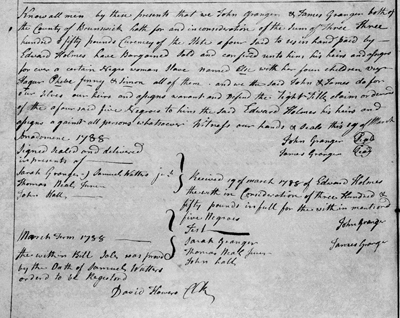 Know all men by these presents that we John Granger & James Granger both of
the County of Brunswick hath for and in consideration of the Sum of three Three
hundred & fifty pounds Currency of the State afour said to us in hand paid by
Edward Holmes have Bargained Sold and confirmed unto him his heirs and assigns
for ever a certain Negro woman Slave named with her four children
Hagar Phebe Jenny & Venor all of them and we the said John & James do for
our Selves our heirs and assigns warrant and Defend the Right Title claim or demand
of the afour said five Negroes to him the said Edward Holmes his heirs and
assigns against all persons whatsoever Witness our hands & Seals this 19 of March
Anodomene 1788
John Granger Seal
Signed Sealed and delivered
James Granger Seal
in presents of
Sarah Granger Samuel Watters
Thomas Neal Juner
John Hall
Received 19 of march 1788 of Edward Holmes
the with in Consideration of three Hundred &
fifty pounds in full for the with in mentioned
five Negroes
John Granger
Test
James Granger
Sarah Granger
Thomas Neal Juner
John Hall
March Term 1788
The within Bill Sale was proved
by the Oath of Samuel Watters
orderd to be Registerd
David Flowers Clk